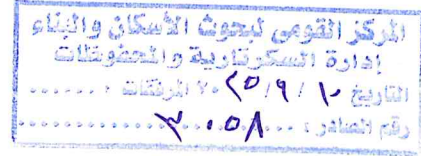 المركز القومى لبحوث الأسكان والبناء
إدارة السكرتارية والمحفوظات
التاريخ ١٠ / ٩ / ٢٠٢٥ المرفقات : .......
رقم الصادر : ........ ٣٠٥٨ ........